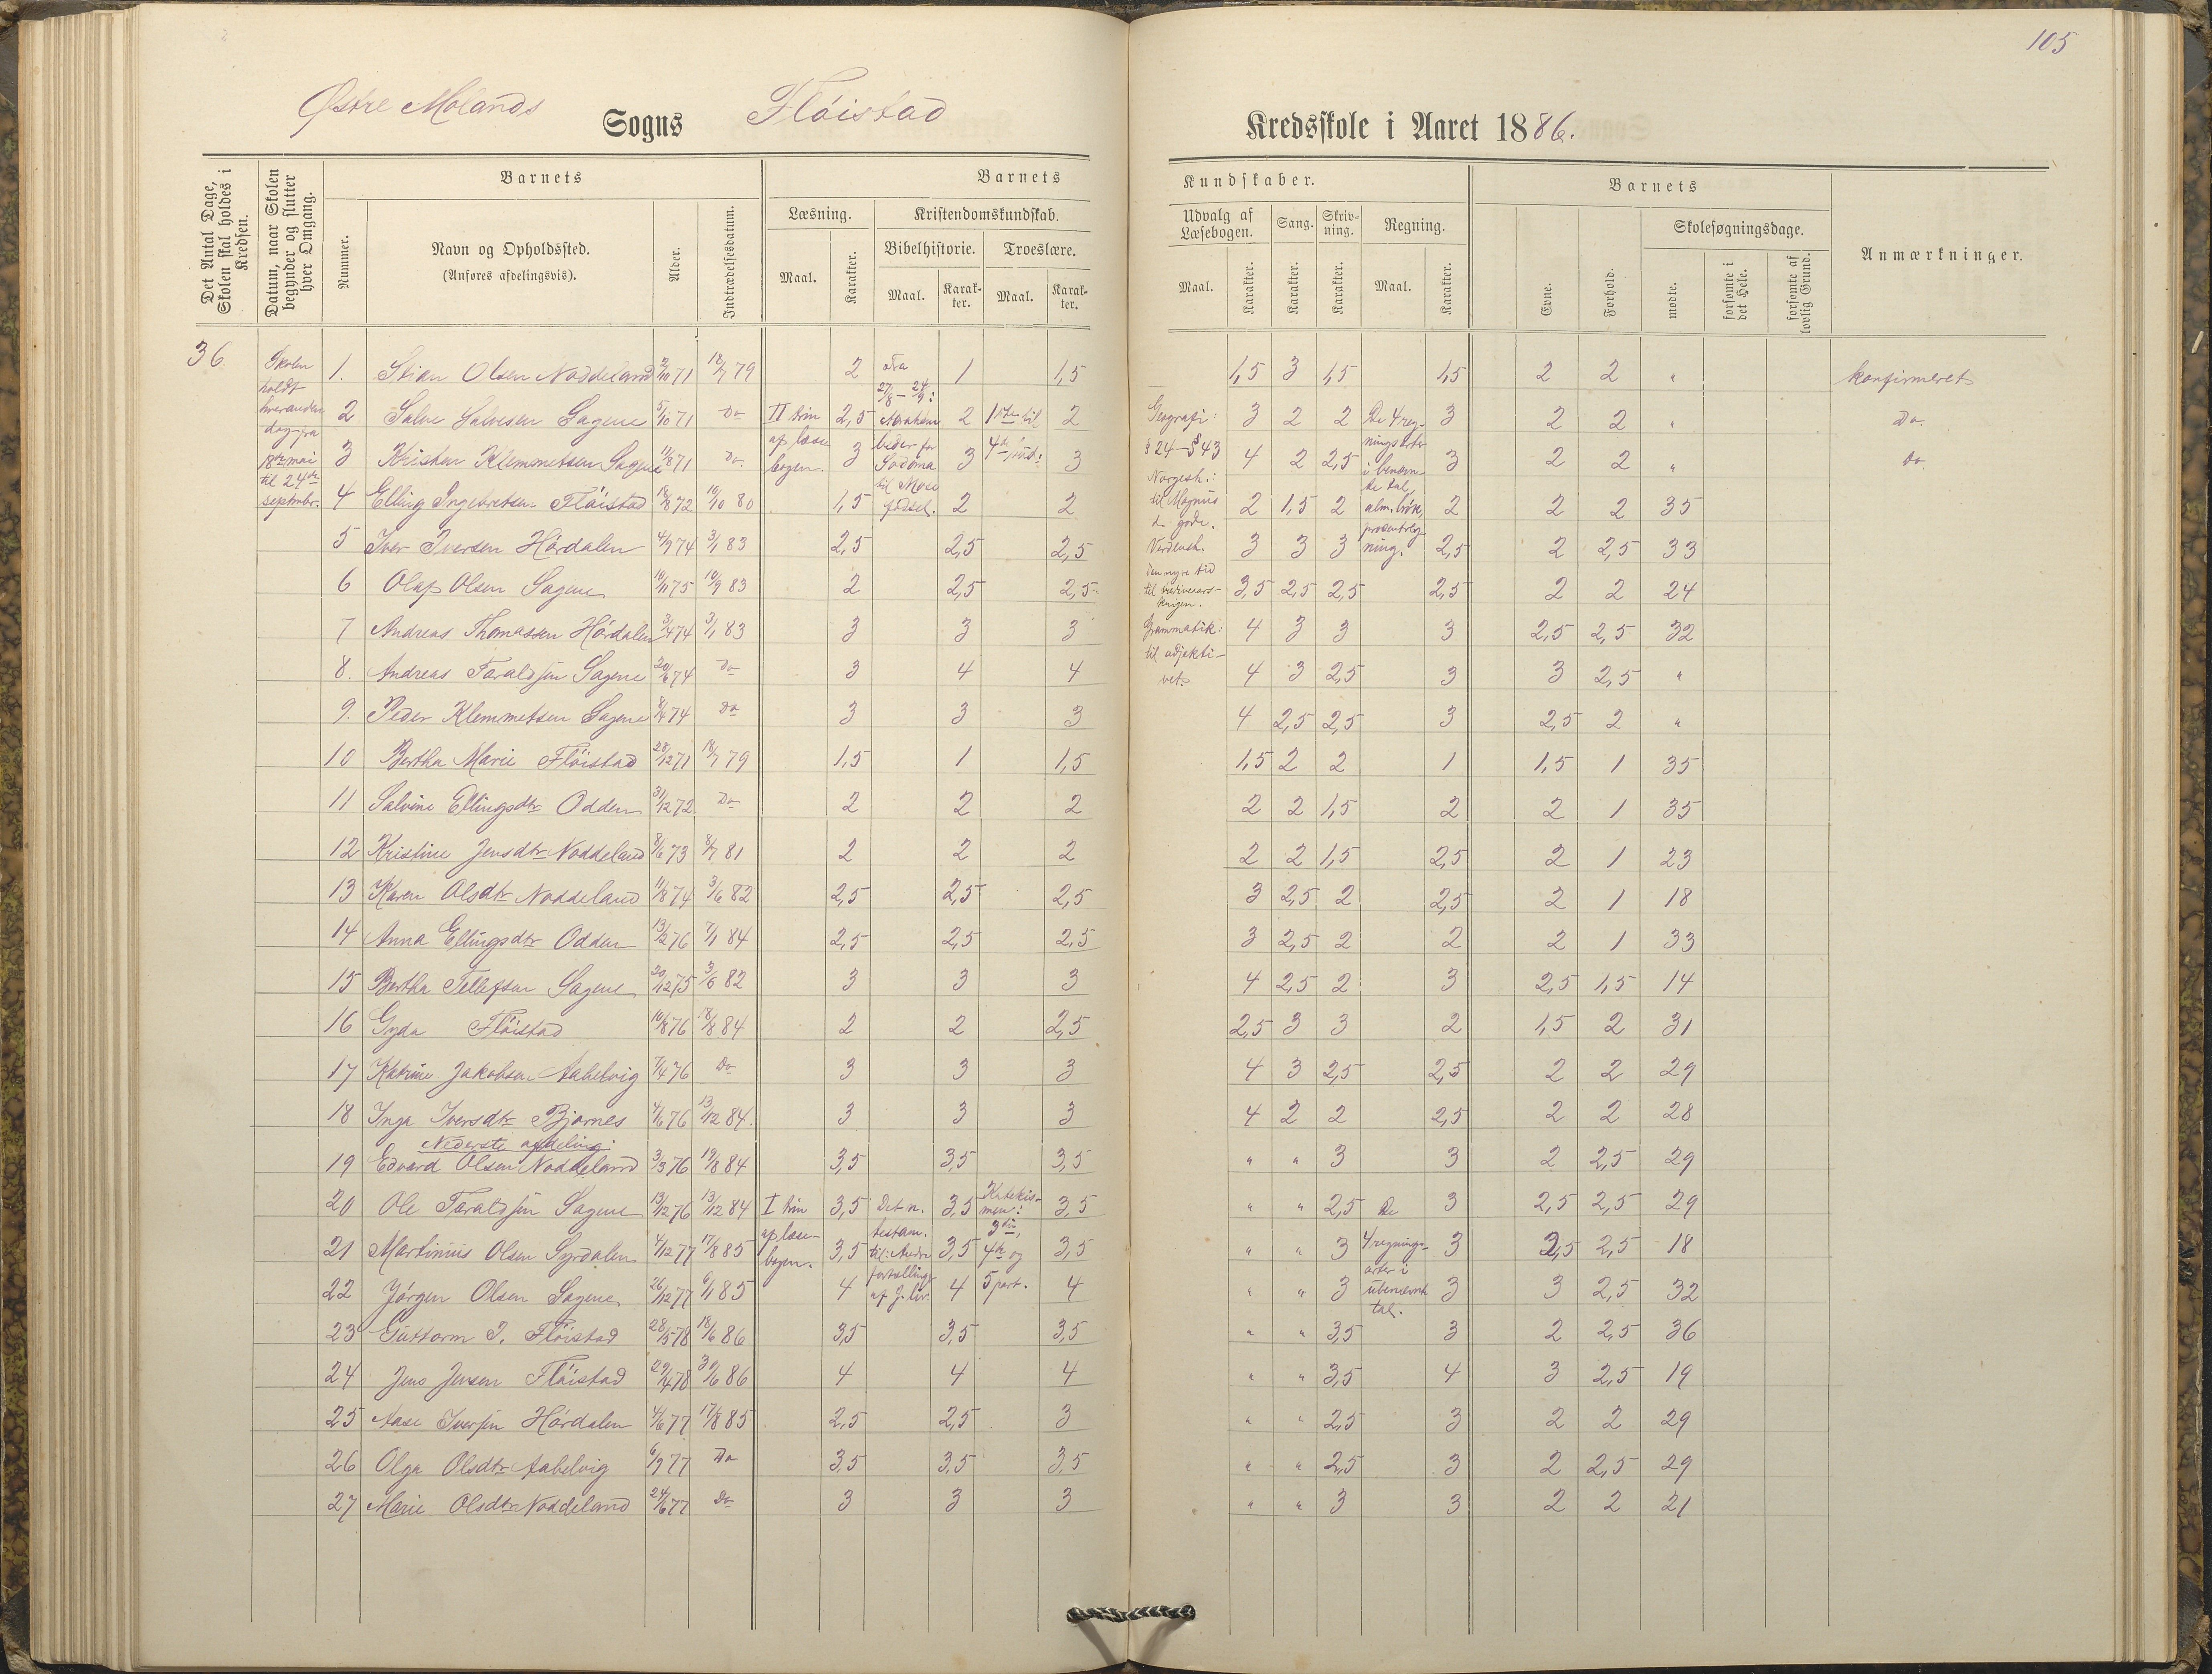 105
Østre Molands Sogns Flöistad Kredsskole i Aaret 1886.
Det Antal Dage, Skolen skal holdes i Kredsen.
Datum, naar Skolen begynder og slutter hver Omgang.
Barnets
Nummer.
Navn og Opholdssted.
(Anføres afdelingsvis).
Alder.
Indtrædelsesdatum.
Barnets
Læsning.
Maal.
Karakter.
Kristendomskundskab.
Bibelhistorie.
Maal.
Karakter.
Troeslære.
Maal.
Karakter.
Kundskaber.
Udvalg af Læsebogen.
Maal.
Karakter.
Sang.
Karakter.
Skrivning.
Karakter.
Regning.
Maal.
Karakter.
Barnets
Evne.
Forhold.
Skolesøgningsdage.
mødte.
forsømte i det Hele.
forsømte af lovlig Grund.
Anmærkninger.
36
Skolen
holdt
hverandendag fra
18de mai
til 24de
septmbr.
1. Stian Olsen Noddeland 2/10 71 18/7 79 2 1 1,5 1,5 3 1,5 1,5 2 2 " konfirmeret
2 Salve Salvesen Sagene 5/10 71 Do 2,5 2 2 3 2 2 3 2 2 " Do
3 Kristen Klemmetsen Sagene 11/8 71 Do 3 3 3 4 2 2,5 3 2 2 " Do
4 Elling Ingebretsen Flöistad 18/8 72 10/10 80 1,5 2 2 2 1,5 2 2 2 2 35
5 Iver Iversen Hördalen 4/9 74 3/1 83 2,5 2,5 2,5 3 3 3 2,5 2 2,5 33
6 Olaf Olsen Sagene 10/11 75 10/9 83 2 2,5 2,5 3,5 2,5 2,5 2,5 2 2 24
7 Andreas Thomassen Hördalen 3/4 74 3/1 83 3 3 3 4 3 3 3 2,5 2,5 32
8. Andreas Taraldsen Sagene 20/6 74 Do 3 4 4 4 3 2,5 3 3 2,5 "
9. Peder Klemmetsen Sagene 8/4 74 Do 3 3 3 4 2,5 2,5 3 2,5 2 "
10 Bertha Marie Flöistad 28/12 71 18/7 79 1,5 1 1,5 1,5 2 2 1 1,5 1 35
11 Salvine Ellingsdtr Odden 31/12 72 Do 2 2 2 2 2 1,5 2 2 1 35
12 Kristine Jensdtr Noddeland 8/6 73 8/7 81 2 2 2 2 2 1,5 2,5 2 1 23
13 Karen Olsdtr Noddeland 11/8 74 3/6 82 2,5 2,5 2,5 3 2,5 2 2,5 2 1 18
14 Anna Ellingsdtr Odden 13/2 76 7/1 84 2,5 2,5 2,5 3 2,5 2 2 2 1 33
15 Bertha Tellefsen Sagene 20/12 75 3/6 82 3 3 3 4 2,5 2 3 2,5 1,5 14
16 Gyda Flöistad 10/8 76 18/8 84 2 2 2,5 2,5 3 3 2 1,5 2 31
17 Katrine Jakobsen Aabelvig 7/4 76 Do 3 3 3 4 3 2,5 2,5 2 2 29
18 Inga Iversdtr Bjornes 4/6 76 13/12 84. 3 3 3 4 2 2 2,5 2 2 28
Nederste afdeling:
19 Edvard Olsen Noddeland 3/3 76 19/8 84 3,5 3,5 3,5 " " 3 3 2 2,5 29
20 Ole Taraldsen Sagene 13/12 76 13/12 84 3,5 3,5 3,5 " " 2,5 3 2,5 2,5 29
21 Martinius Olsen Syrdalen 4/12 77 17/8 85 3,5 3,5 3,5 " " 3 3 2,5 2,5 18
22 Jörgen Olsen Sagene 26/12 77 6/1 85 4 4 4 " " 3 3 3 2,5 32
23 Guttorm I. Flöistad 28/5 78 18/6 86 3,5 3,5 3,5 " " 3,5 3 2 2,5 36
24 Jens Jensen Flöistad 29/4 78 30/6 86 4 4 4 " " 3,5 4 3 2,5 19
25 Aase Iversen Hördalen 4/6 77 17/8 85 2,5 2,5 3 " " 2,5 3 2 2 29
26 Olga Olsdtr Aabelvig 6/9 77 Do 3,5 3,5 3,5 " " 2,5 3 2 2,5 29
27 Marie Olsdtr Noddeland 24/6 77 Do 3 3 3 " " 3 3 2 2 21
II trin
af læse
bogen.
Fra
27/8 – 24/9:
Abraham
beder for
Sodoma
til Mose
fødsel.
1ste til
4de bud:
Geografi:
§ 24 – § 43
Norgesh.:
til Magnus
d. gode.
Verdensh.
den nyere tid
Grammatik:
til adjekti-
vet.
De 4 reg-
ningsarter
i benævn-
te tal,
alm. brøk,
procentreg-
ning.
I trin
af læse-
bogen.
Det n.
testam.
til: Andre
fortællinger
af J. liv.
Katekis-
men:
3die,
4de og
5 part.
De
4 regnings-
arter i
ubenævnt
tal.